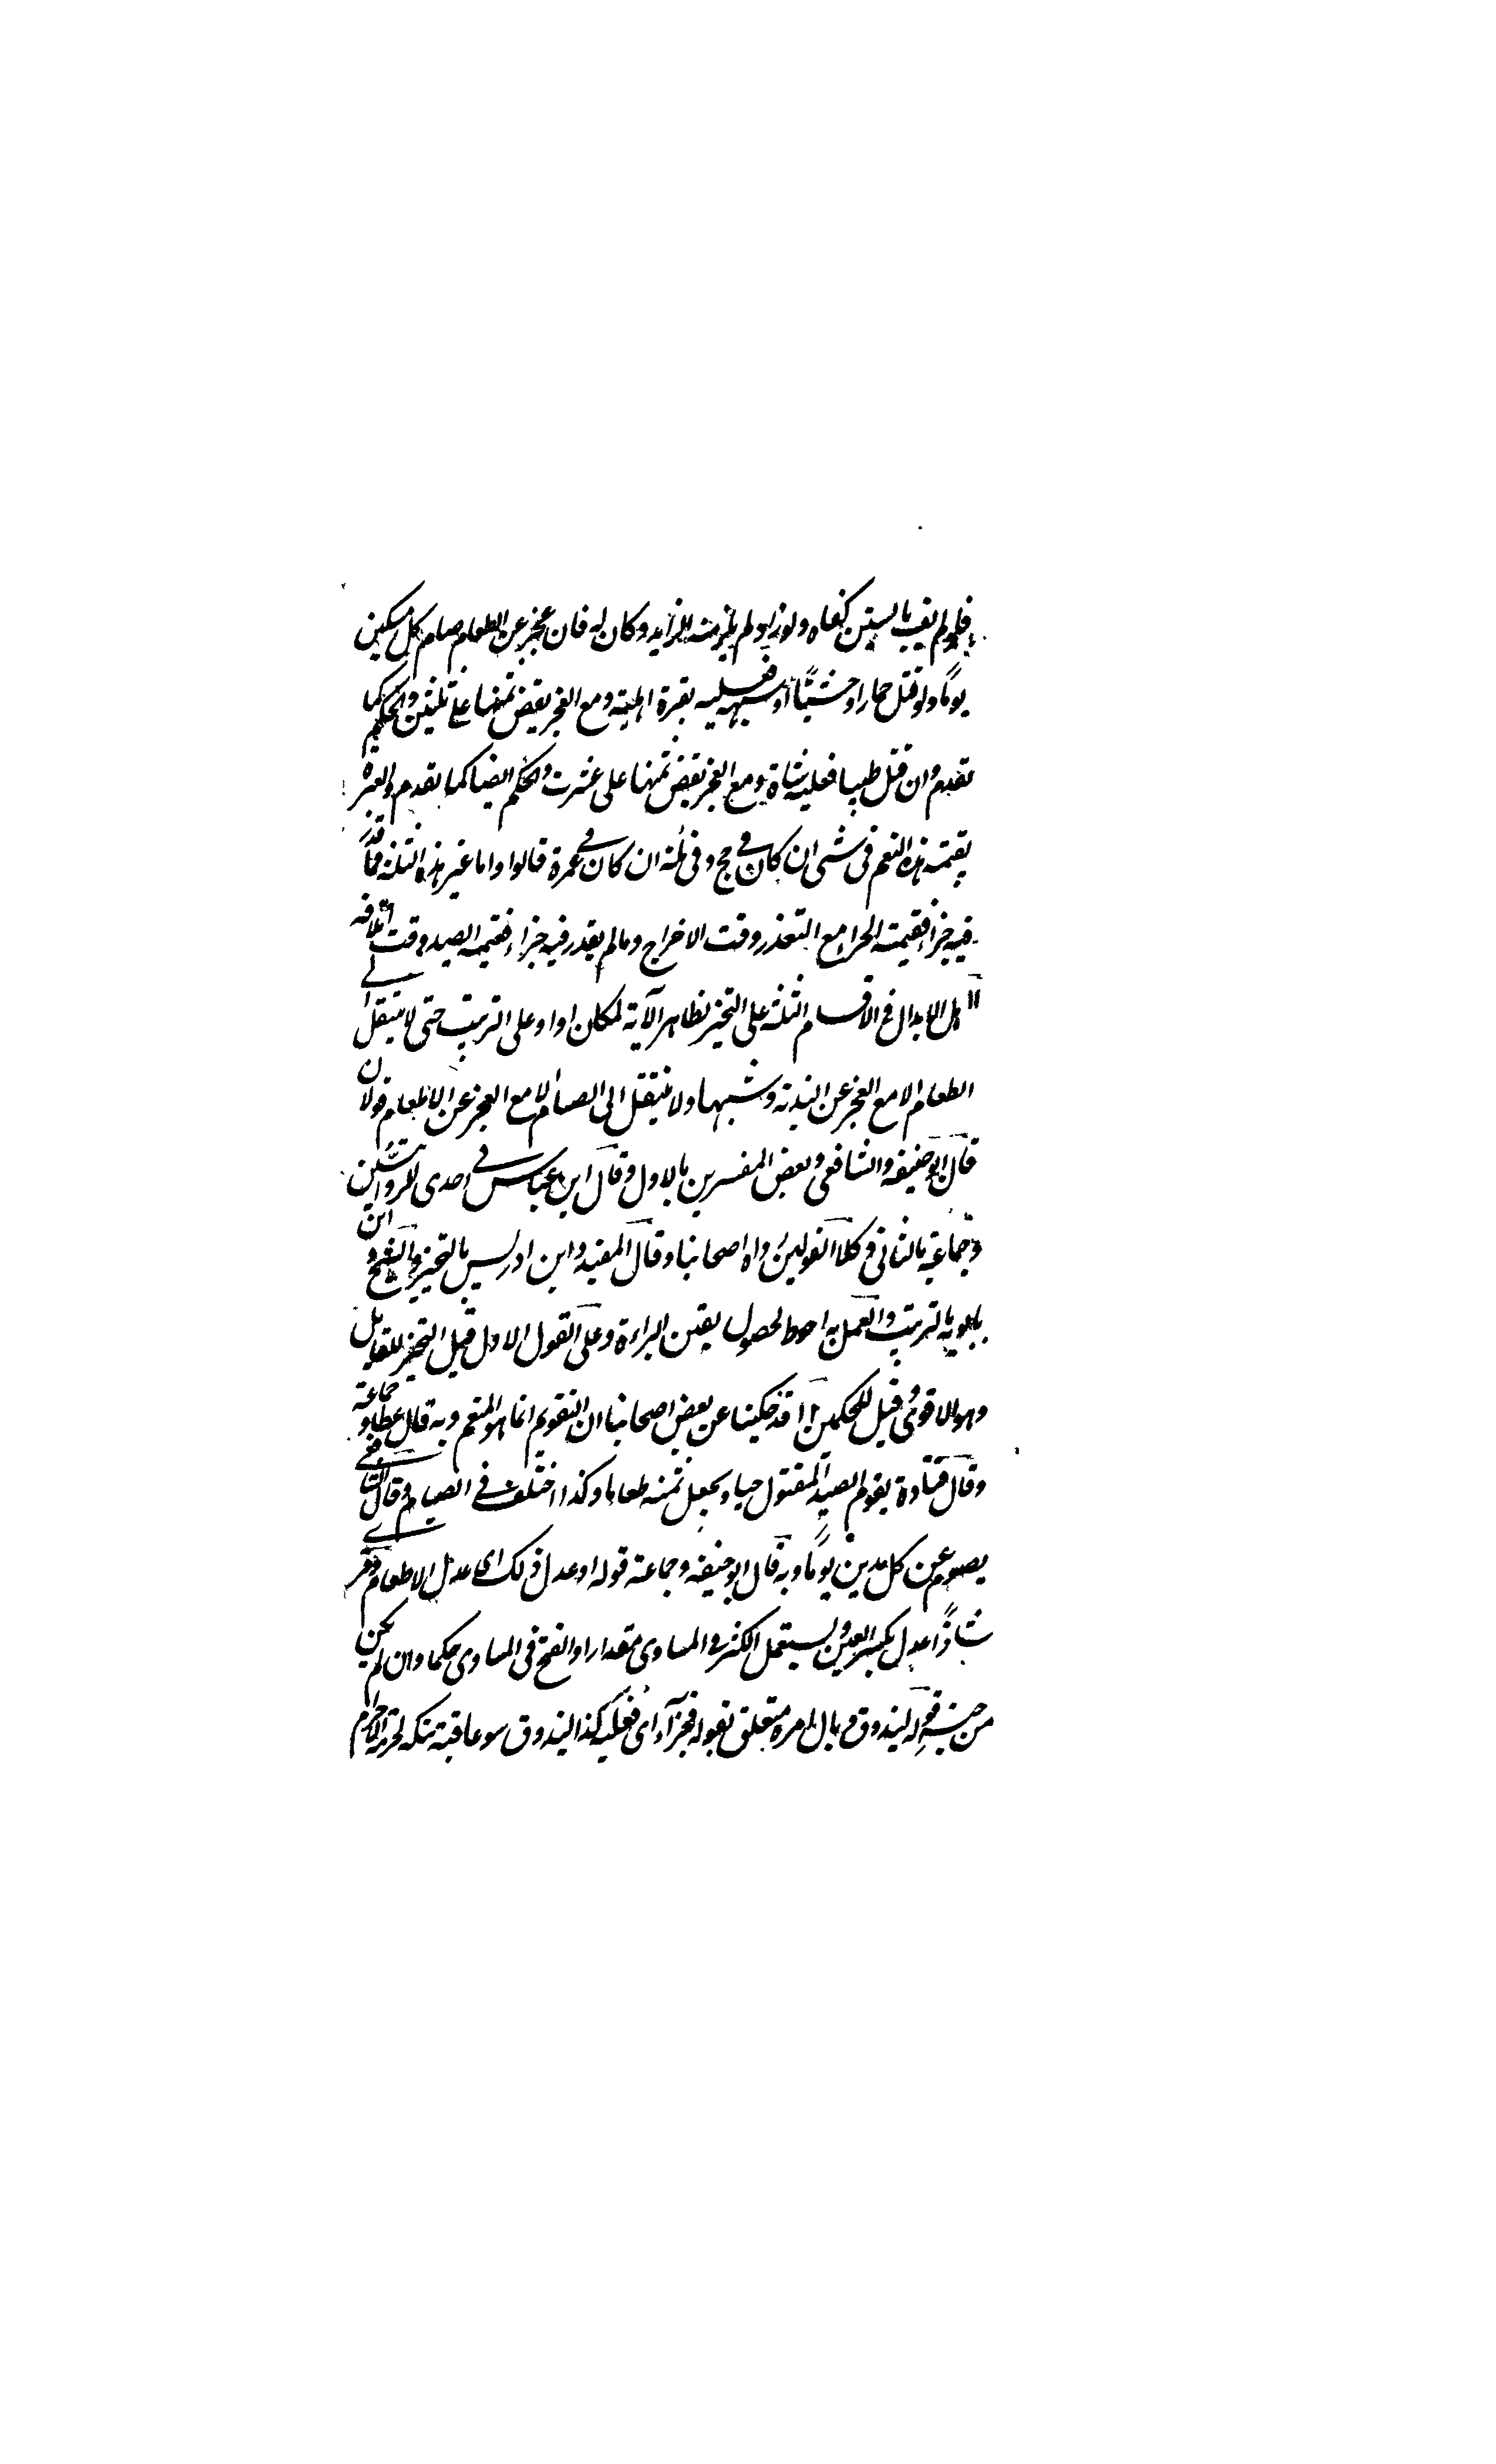 فلو لم يف بالستين كفاه ولو زاد لم يلزمه الزايد وكان له فان عجز عن الطعام صام كل مسكين
يومًا ولو قتل حمارا وحشيًّا او شبهه فعليه بقرة اهلية ومع العجز يفض ثمنها على ثلثين والحكم كما
تقدم وان قتل ظبيا فعليه شاة ومع العجز يفض ثمنها على عشرة والحكم ايضا كما تقدم والعبرة
بقيمة هذه النعم في منى ان كان في حج وفي مكة ان كان في عمرة قالوا واما غير هذه الثلثة فما قدر
فيه جزاء فقيمة الجزاء مع التعذر وقت الاخراج وما لم يقدر فيه جزاء فقيمة الصيد وقت اتلافه
١١ هل الابدال في الاقسام الثلثة على التخيير لظاهر الآية لمكان او او على الترتيب حتى لا ينتقل الى
الطعام الا مع العجز عن البدنة وشبهها ولا ينتقل الى الصيام الا مع العجز عن الاطعام قولان
قال ابو حنيفه والشافعي وبعض المفسرين بالاول وقال ابن عباس في احدى الروايتين
وجماعة بالثاني وكلا القولين رواه اصحابنا وقال المفيد وابن ادريس بالتخيير والشيخ وابن
بابويه بالترتيب والعمل به احوط لحصول يقين البراءة وعلى القول الاول قيل التخيير للقاتل
وهو الاقوى وقيل للحكمين ١٢ قد حكينا عن بعض اصحابنا ان التقويم انما هو للنعم وبه قال عطا وجماعة
وقال قتادة يقوم الصيد المقتول حيا ويجعل ثمنه طعاما وكذا اختلف في الصيام وقال الشافعي
يصوم عن كل مدين يومًا وبه قال ابو حنيفة وجماعة قوله او عدل ذلك اى عدل الاطعام وقرى
شاذًا عدل بكسر العين ويستعمل الكسر في المساوى مقدارا والفتح في المساوى حكما وان لم يكن
من جنسه قوله ليذوق وبال امره متعلق بقوله فجزآء اى فعليه كذا ليذوق سوء عاقبة هتكه لحرمة الاحرام